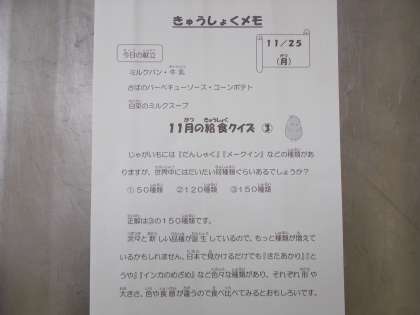 きゅうしょくメモ
11/25
(月)
今日の献立
ミルクパン・牛乳
さばのバーベキューソース・コーンポテト
白菜のミルクスープ
11月の給食クイズ ③
じゃがいもには『だんしゃく』『メークイン』などの種類があ
りますが、世界中にはだいたい何種類ぐらいあるでしょうか？
①50種類 ②120種類 ③150種類
正解は③の150種類です。
次々と新しい品種が誕生しているので、もっと種類が増えて
いるかもしれません。日本で見かけるだけでも『きたあかり』『と
うや』『インカのめざめ』など色々な種類があり、それぞれ形や
大きさ、色や食感が違うので食べ比べてみるとおもしろいです。